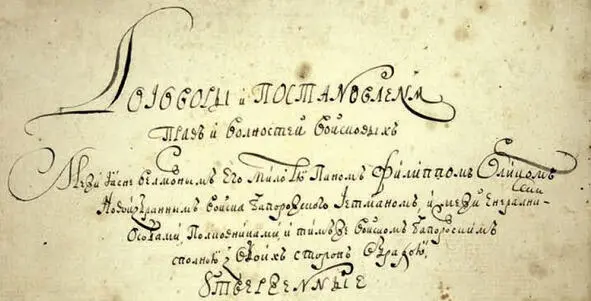 Договоры и ПОСТАНОВЛЕНꙖ
Правъ и волностей войсковыхъ
Межи Ясне велможнымъ Его милостю Паномъ Филиппомъ Орликомъ
Новоизбраннымъ войска Запорозского Гетманомъ, и межи Енерални-
Особами, Полковниками, и тимже войскомъ Запорозскимъ
сполною з обоихъ сторонъ обрадою,
Утверженные